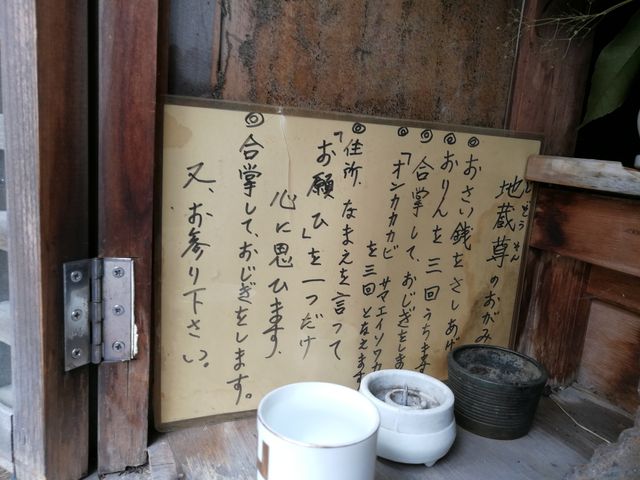 地蔵尊のおがみ
じぞうそん
◎おさい銭をさしあげ
◎おりんを三回うちます
◎合掌して、おじぎをしま
◎「オンカカカビ サマエイソワカ
を三回となえます
◎住所、なまえを言って
「お願ひ」を一つだけ
心に思ひます、
◎合掌して、おじぎをします。
又、お参り下さい。